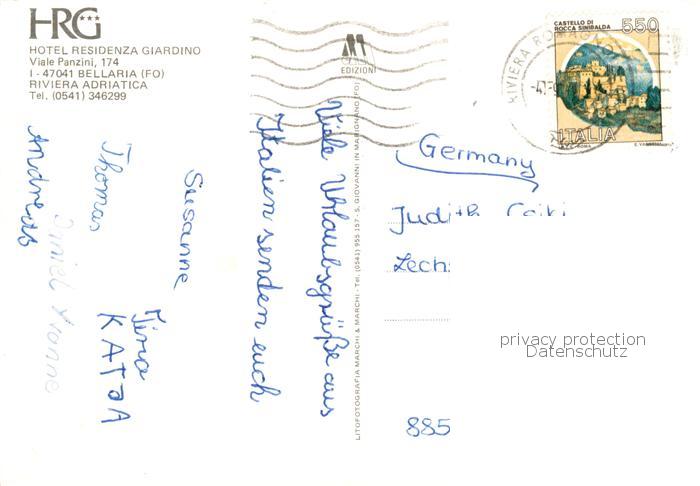 HRG***
HOTEL RESIDENZA GIARDINO
Viale Panzini, 174
I - 47041 BELLARIA (FO)
RIVIERA ADRIATICA
Tel. (0541) 346299
EDIZIONI
LITOFOTOGRAFIA MARCHI & MARCHI - Tel. (0541) 955.157 - S. GIOVANNI IN MARIGNANO (FO)
CASTELLO DI
ROCCA SINIBALDA
550
ITALIA
RIVIERA ROMAGNOLA
Viele Urlaubsgrüße aus
Italien senden euch
Susanne
Tina
Thomas
KATJA
Yvonne
Andreas
Germany
Judith
885
privacy protection
Datenschutz